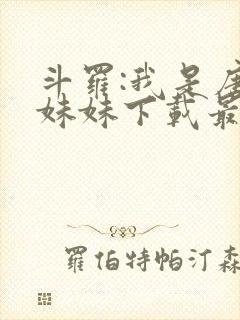 斗罗:我是唐
妹妹下載最
羅伯特帕汀森